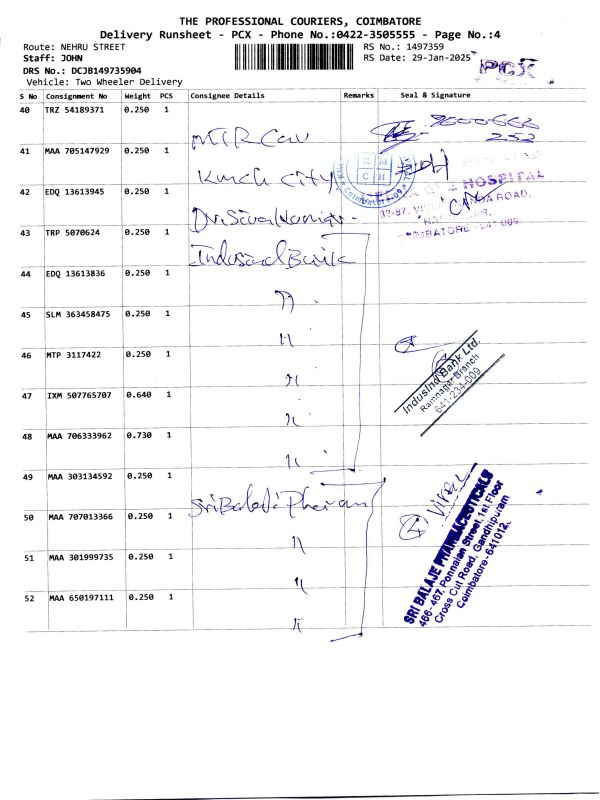 THE PROFESSIONAL COURIERS, COIMBATORE
Delivery Runsheet - PCX - Phone No.:0422-3505555 - Page No.:4
Route: NEHRU STREET
RS No.: 1497359
Staff: JOHN
RS Date: 29-Jan-2025
PCX
DRS No.: DCJB149735904
Vehicle: Two Wheeler Delivery
S No Consignment No Weight PCS Consignee Details Remarks Seal & Signature
40 TRZ 54189371 0.250 1
9600-666
252
41 MAA 705147929 0.250 1
City
HOSPITAL
ROAD,
42 EDQ 13613945 0.250 1
COIMBATORE - 641 009
43 TRP 5070624 0.250 1 Indusind Bank
44 EDQ 13613836 0.250 1
45 SLM 363458475 0.250 1
46 MTP 3117422 0.250 1
IndusInd Bank Ltd.
Ramnagar Branch
641-234-009
47 IXM 507765707 0.640 1
48 MAA 706333962 0.730 1
49 MAA 303134592 0.250 1 Sri Balaji Pharam
50 MAA 707013366 0.250 1
51 MAA 301999735 0.250 1
52 MAA 650197111 0.250 1
SRI BALAJE PHARMACEUTICALS
466-467, Ponnaian Street, 1st Floor
Cross Cut Road, Gandhipuram
Coimbatore - 641012.